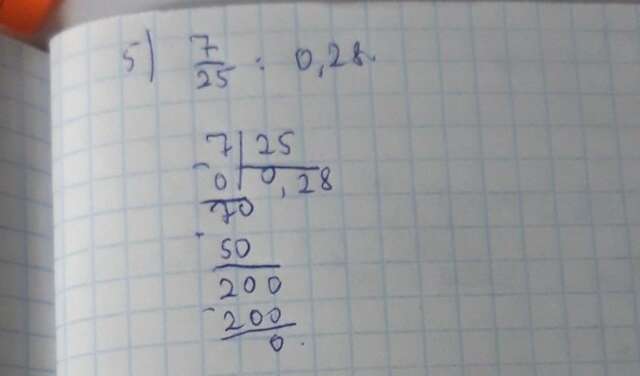 5) 7/25 : 0,28.
7 | 25
- 0 | 0,28
70
- 50
200
- 200
0.